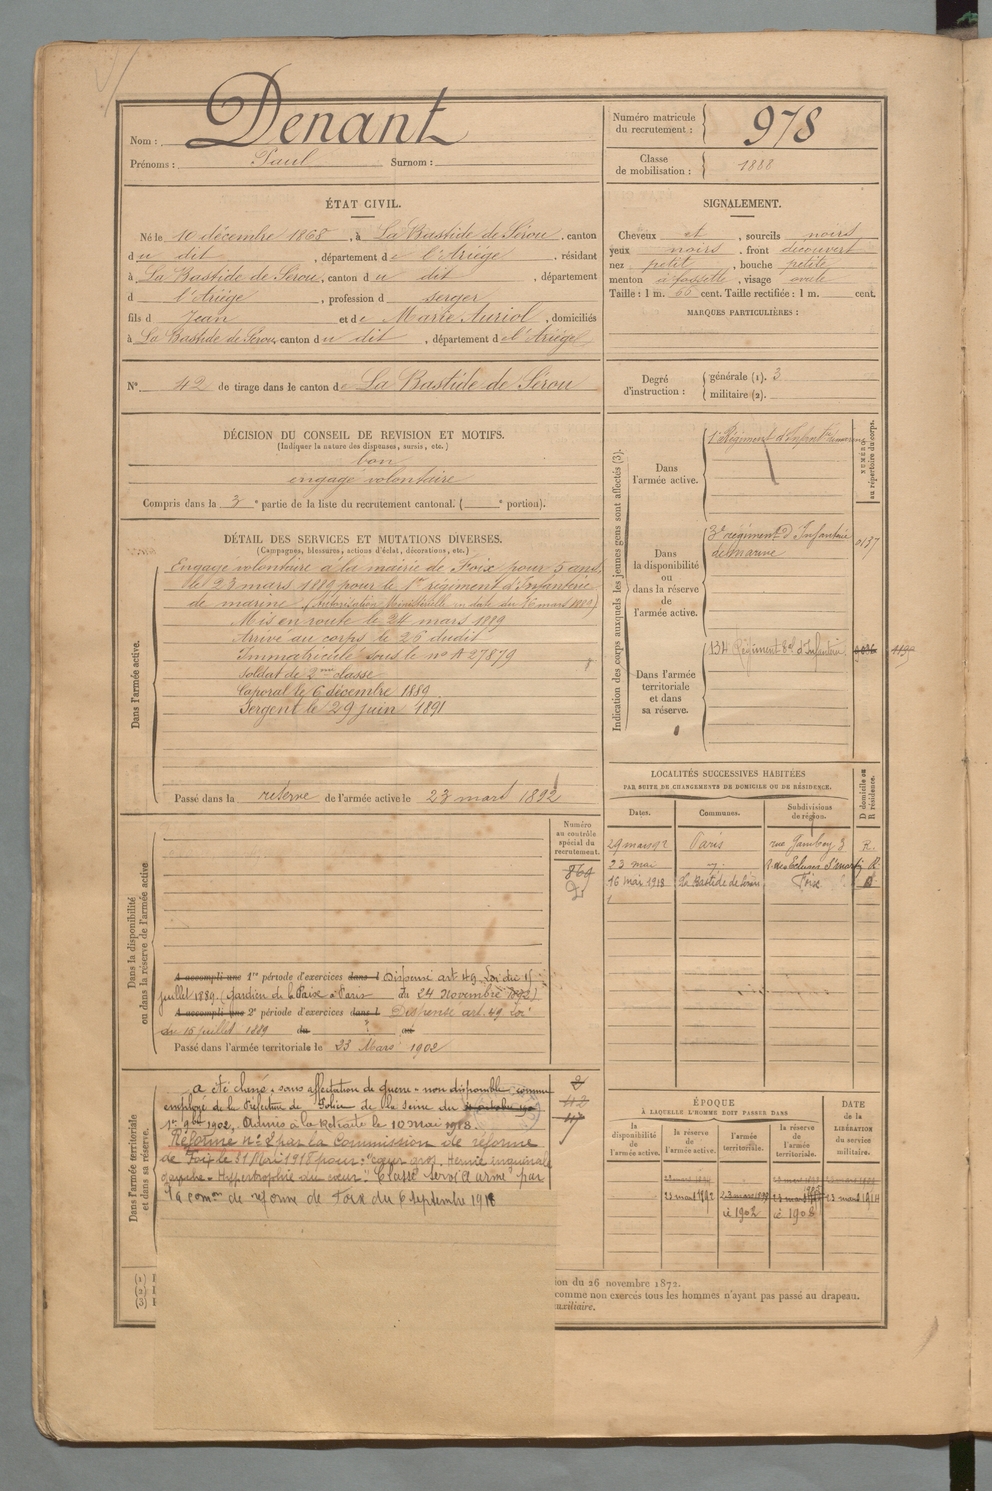 Nom : Denant
Prénoms : Paul Surnom :
Numéro matricule du recrutement : 978
Classe de mobilisation : 1888
ÉTAT CIVIL.
Né le 10 décembre 1868, à La Bastide de Sérou, canton
du dit, département de l'Ariège, résidant
à La Bastide de Sérou, canton du dit, département
d l'Ariège, profession d serger
fils d Jean et de Marie Auriol, domiciliés
à La Bastide de Sérou, canton du dit, département de l'Ariège
N° 42 de tirage dans le canton de La Bastide de Sérou
SIGNALEMENT.
Cheveux et, sourcils noirs
yeux noirs, front découvert
nez petit, bouche petite
menton à fossette, visage ovale
Taille : 1 m. 65 cent. Taille rectifiée : 1 m. cent.
MARQUES PARTICULIÈRES :
Degré d'instruction : générale (1). 3
militaire (2).
DÉCISION DU CONSEIL DE REVISION ET MOTIFS.
(Indiquer la nature des dispenses, sursis, etc.)
bon
engagé volontaire
Compris dans la 3e partie de la liste du recrutement cantonal. ( e portion).
DÉTAIL DES SERVICES ET MUTATIONS DIVERSES.
(Campagnes, blessures, actions d'éclat, décorations, etc.)
Dans l'armée active.
Engagé volontaire à la mairie de Foix pour 5 ans,
le 23 mars 1889 pour le 1er régiment d'Infanterie
de marine (Autorisation Ministérielle en date du mars 1889)
Mis en route le 24 mars 1889
Arrivé au corps le 26 dudit
Immatriculé sous le no A 27879
Soldat de 2me classe
Caporal le 6 décembre 1889
Sergent le 29 juin 1891
Passé dans la réserve de l'armée active le 23 mars 1892
Indication des corps auxquels les jeunes gens sont affectés (3).
NUMÉRO au répertoire du corps.
Dans l'armée active.
1er Régiment d'Infant
Dans la disponibilité ou dans la réserve de l'armée active.
3e régiment d'Infanterie 0137
de marine
Dans l'armée territoriale et dans sa réserve.
134 Régiment d'Infanterie
LOCALITÉS SUCCESSIVES HABITÉES
PAR SUITE DE CHANGEMENTS DE DOMICILE OU DE RÉSIDENCE.
Dates. Communes. Subdivisions de région. D domicile ou R résidence.
29 mars 92 Paris rue R.
23 mai Écluses St martin R
16 mai 1918 La Bastide de Sérou Foix D
Dans la disponibilité ou dans la réserve de l'armée active
Numéro au contrôle spécial du recrutement.
869
A accompli une 1re période d'exercices dans l Dispensé art 49 Loi du 15
juillet 1889. (Gardien de la Paix à Paris du 24 novembre 1892)
A accompli une 2e période d'exercices dans l Dispense art. 49 Loi
du 15 juillet 1889 du au
Passé dans l'armée territoriale le 23 Mars 1902
Dans l'armée territoriale et dans sa réserve.
a été classé "sans affectation de guerre" non disponible comme
employé de la Préfecture de Police de la Seine du
1er 9bre 1902, Admis à la Retraite le 10 mai 1918.
Réformé n° 2 par la commission de réforme
de Foix le 31 Mai 1918 pour: "cœur gros. Hernie inguinale
gauche - Hypertrophie du cœur." Classé servce armé par
la comon de réforme de Foix du 6 septembre 1918
ÉPOQUE
À LAQUELLE L'HOMME DOIT PASSER DANS
la disponibilité de l'armée active. la réserve de l'armée active. l'armée territoriale. la réserve de l'armée territoriale.
DATE de la LIBÉRATION du service militaire.
23 mars 1892 23 mars 1899 23 mars 1914
ci 1902 ci 1908
(1)
(2)
(3)
ion du 26 novembre 1872.
comme non exercés tous les hommes n'ayant pas passé au drapeau.
uxiliaire.